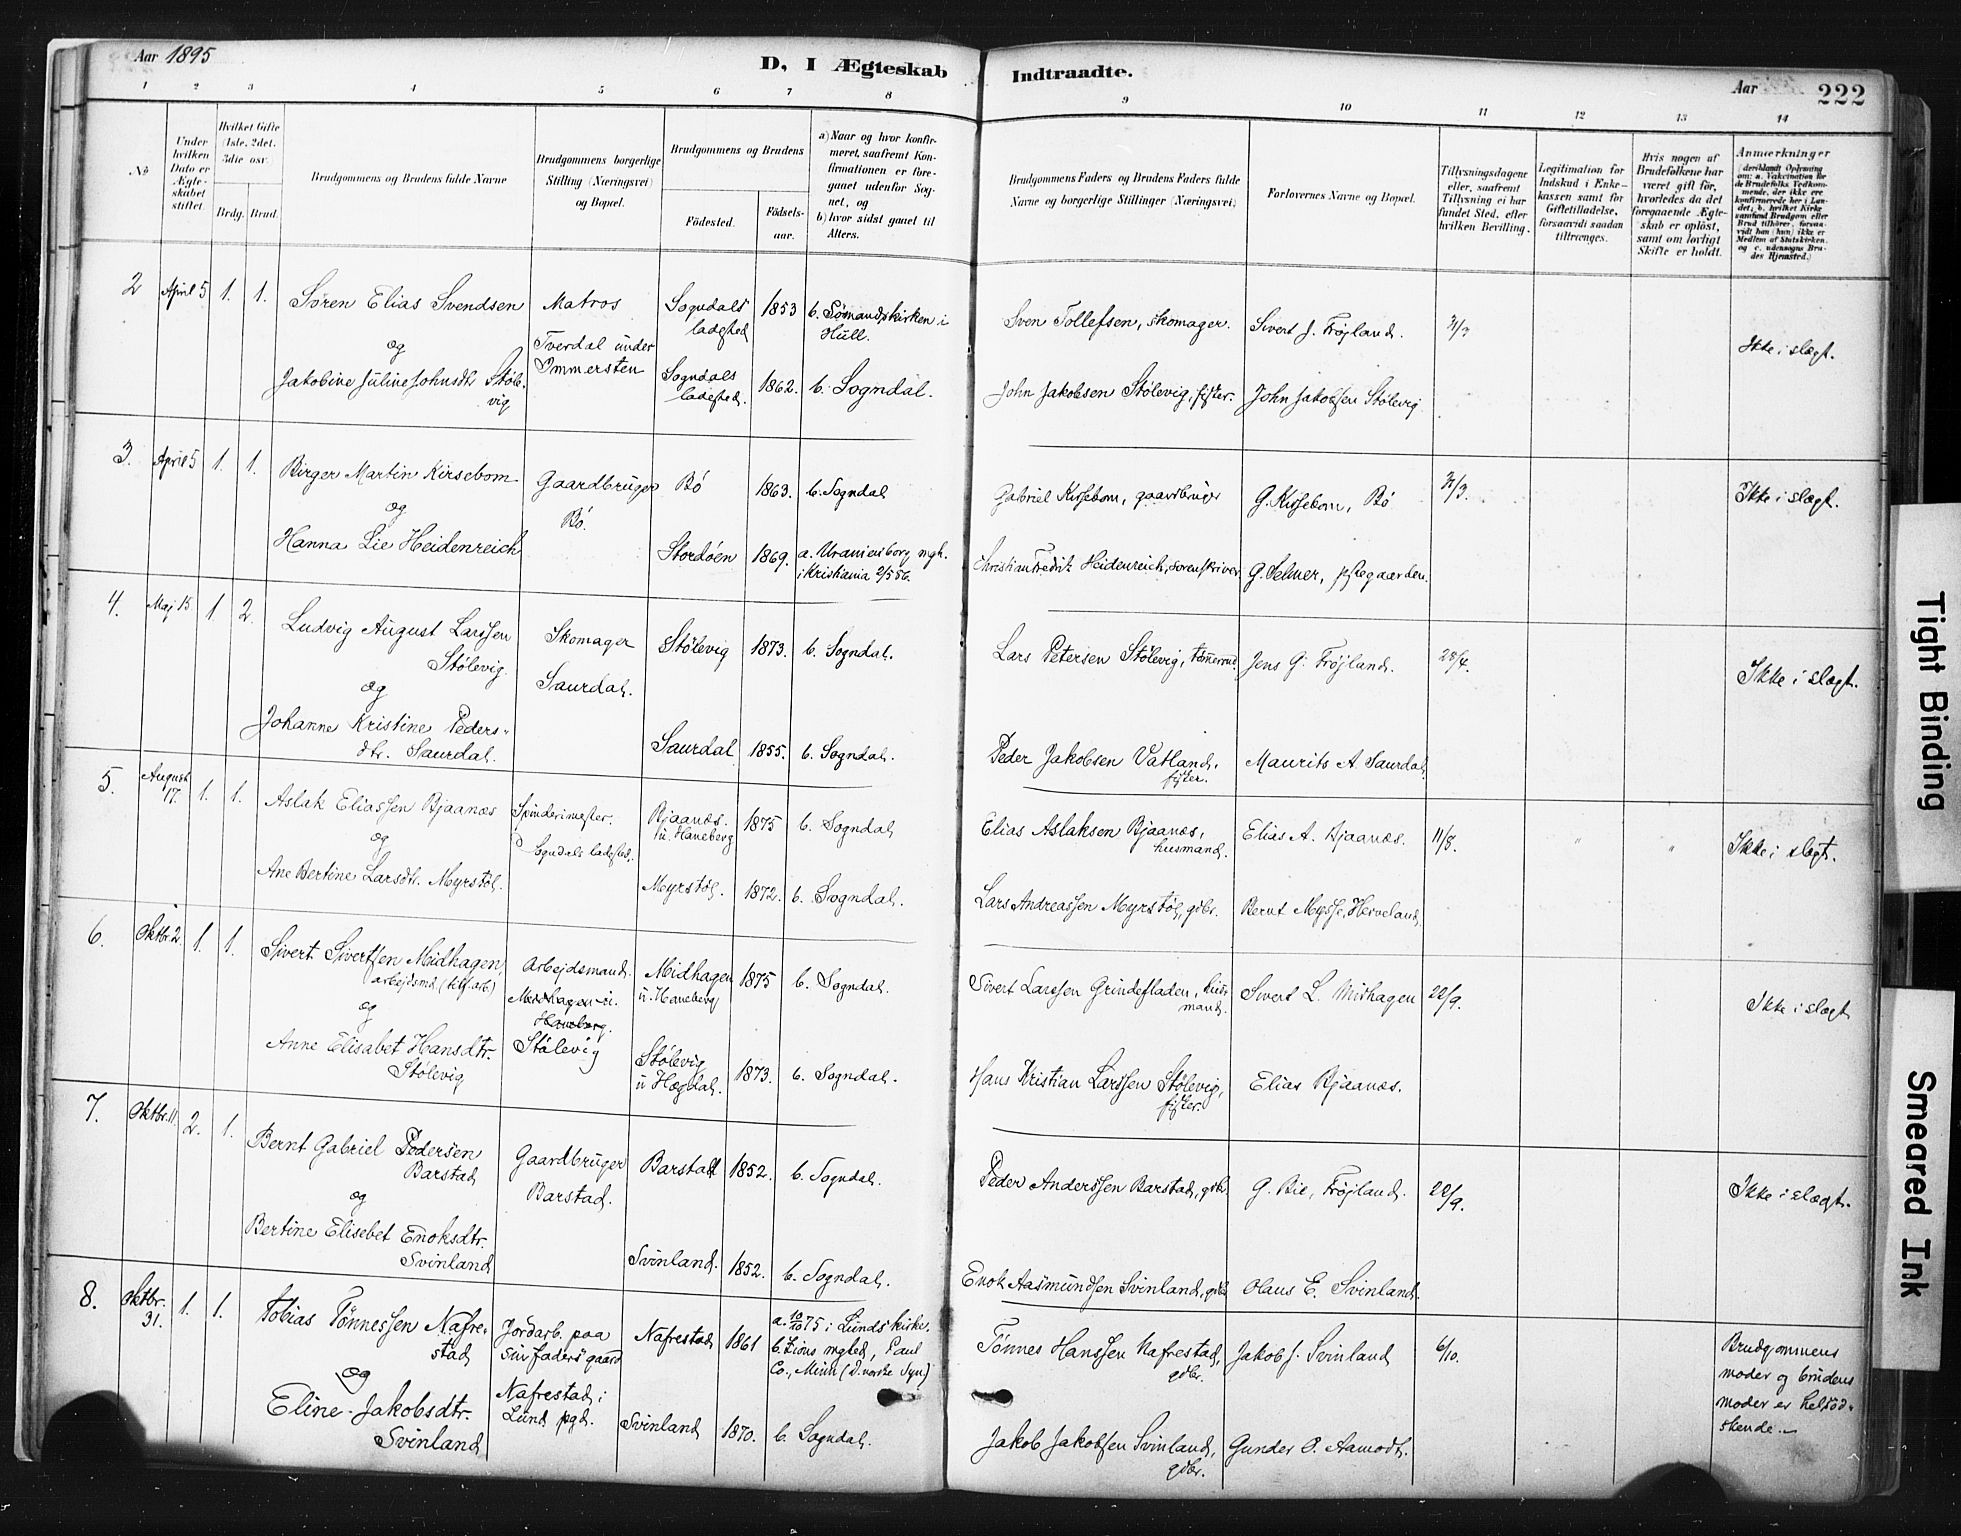 Aar 1895
D, I Ægteskab Indtraadte.
Aar
222
1 2 3 4 5 6 7 8 9 10 11 12 13 14
No
Under hvilken Dato er Ægteskabet stiftet.
Hvilket Gifte (1ste, 2det, 3die osv.
Brdg. Brud.
Brudgommens og Brudens fulde Navne
Brudgommens borgerlige Stilling (Næringsvei) og Bopæl.
Brudgommens og Brudens
Fødested.
Fødselsaar.
a) Naar og hvor konfirmeret, saafremt Konfirmationen er foregaaet udenfor Sognet, og
b) hvor sidst gaaet til Alters.
Brudgommens Faders og Brudens Faders fulde Navne og borgerlige Stillinger (Næringsvei)
Forlovernes Navne og Bopæl.
Tillysningsdagene eller, saafremt Tillysning ei har fundet Sted, efter hvilken Bevilling.
Legitimation for Indskud i Enkekassen samt for Giftetilladelse, forsaavidt saadan tiltrænges.
Hvis nogen af Brudefolkene har været gift før, hvorledes da det foregaaende Ægteskab er opløst, samt om lovligt Skifte er holdt.
Anmærkninger
(deriblandt Oplysning om: a. Vakcination for de Brudefolks Vedkommende, der ikke ere konfirmerede her i Landet; b. hvilket Kirkesamfund Brudgom eller Brud tilhører, forsaavidt han (hun) ikke er Medlem af Statskirken, og c. udensogns Brudes Hjemsted.)
2 April 5 1. 1. Søren Elias Svendsen
og
Jakobine Juline Johnsdtr. Støle-
vig
Matros
Tverdal under
Immersten
Sogndals
ladested 1853 b. Sømandskirken i
Hull.
Sogndals
ladested. 1862. b. Sogndal.
Sven Tollefsen, skomager. Sivert J. Frøjland. 31/3
John Jakobsen Stølevig, fister. John Jakobsen Stølevig
Ikke i slægt.
3. April 5 1. 1. Birger Martin Kirsebom
og
Hanna Lie Heidenreich
Gaardbruger
Bø.
Bø 1863. b. Sogndal
Stordøen 1869. a. Uraniensborg mgh.
i Kristiania 2/5 86.
Gabriel Kirsebom, gaardbruger G. Kirsebom, Bø 31/3.
Christian Fredrik Heidenreich, sorenskriver G. Selmer, præstegaarden.
Ikke i slægt.
4. Maj 15. 1 2. Ludvig August Larssen
Stølevig.
og
Johanne Kristine Peders-
dtr. Saurdal.
Skomager
Saurdal.
Stølevig 1873. b. Sogndal.
Saurdal 1855. b. Sogndal.
Lars Petersen Stølevig, tømmermd. Jens G. Frøjland. 28/4.
Peder Jakobsen Vatland,
fister. Maurits A Saurdal
Ikke i slægt.
5. August
17. 1. 1. Aslak Eliassen Bjaanæs
og
Ane Bertine Larsdtr. Myrstøl.
Spinderimester.
Sogndals ladested.
Bjaanæs.
u. Haneberg 1875 b. Sogndal
Myrstøl. 1872. b. Sogndal.
Elias Aslaksen Bjaanæs,
husmand. Elias A. Bjaanæs. 11/8.
Lars Andreassen Myrstøl, gdbr. Bernt Mysse, Herveland.
" "
Ikke i slægt.
6. Oktbr. 2. 1. 1. Sivert Sivertsen Midhagen,
arbejdsmd.
og
Anne Elisabet Hansdtr.
Stølevig
Arbejdsmand.
Midhagen u.
Haneberg.
Stølevig
Midhagen
u. Haneberg 1875 b. Sogndal.
Stølevig
u Hægdal. 1873. b. Sogndal.
Sivert Larssen Grindefladen, hus-
mand. Sivert L. Midhagen 22/9.
Hans Kristian Larssen Stølevig,
fister. Elias Bjaanæs.
Ikke i slægt
7. Oktbr. 11. 2. 1. Bernt Gabriel Pedersen
Barstad
og
Bertine Elisebet Enoksdtr.
Svinland
Gaardbruger
Barstad.
Barstad 1852. b. Sogndal.
Svinland. 1852. b. Sogndal.
Peder Anderssen Barstad, gdbr. G. Bie, Frøjland. 22/9.
Enok Aasmundsen Svinland, gdbr. Olaus E. Svinland.
Ikke i slægt.
8. Oktbr.
31. 1. 1. Tobias Tønnessen Nafre-
stad
og
Eline Jakobsdtr.
Svinland
Jordarb. paa
sin faders gaard
Nafrestad i
Lund pgd.
Nafrestad 1861 a. 10/10 75 i Lunds kirke.
b. Zions mghed, Paul
Co., Minn (D. norske Syn)
Svinland 1870. b. Sogndal.
Tønnes Hanssen Nafrestad,
gdbr. Jakob J. Svinland 6/10.
Jakob Jakobsen Svinland,
gdbr. Gunder O. Aamodt.
Brudgommens
moder og brudens
moder er helsød-
skende.
Tight Binding
Smeared Ink